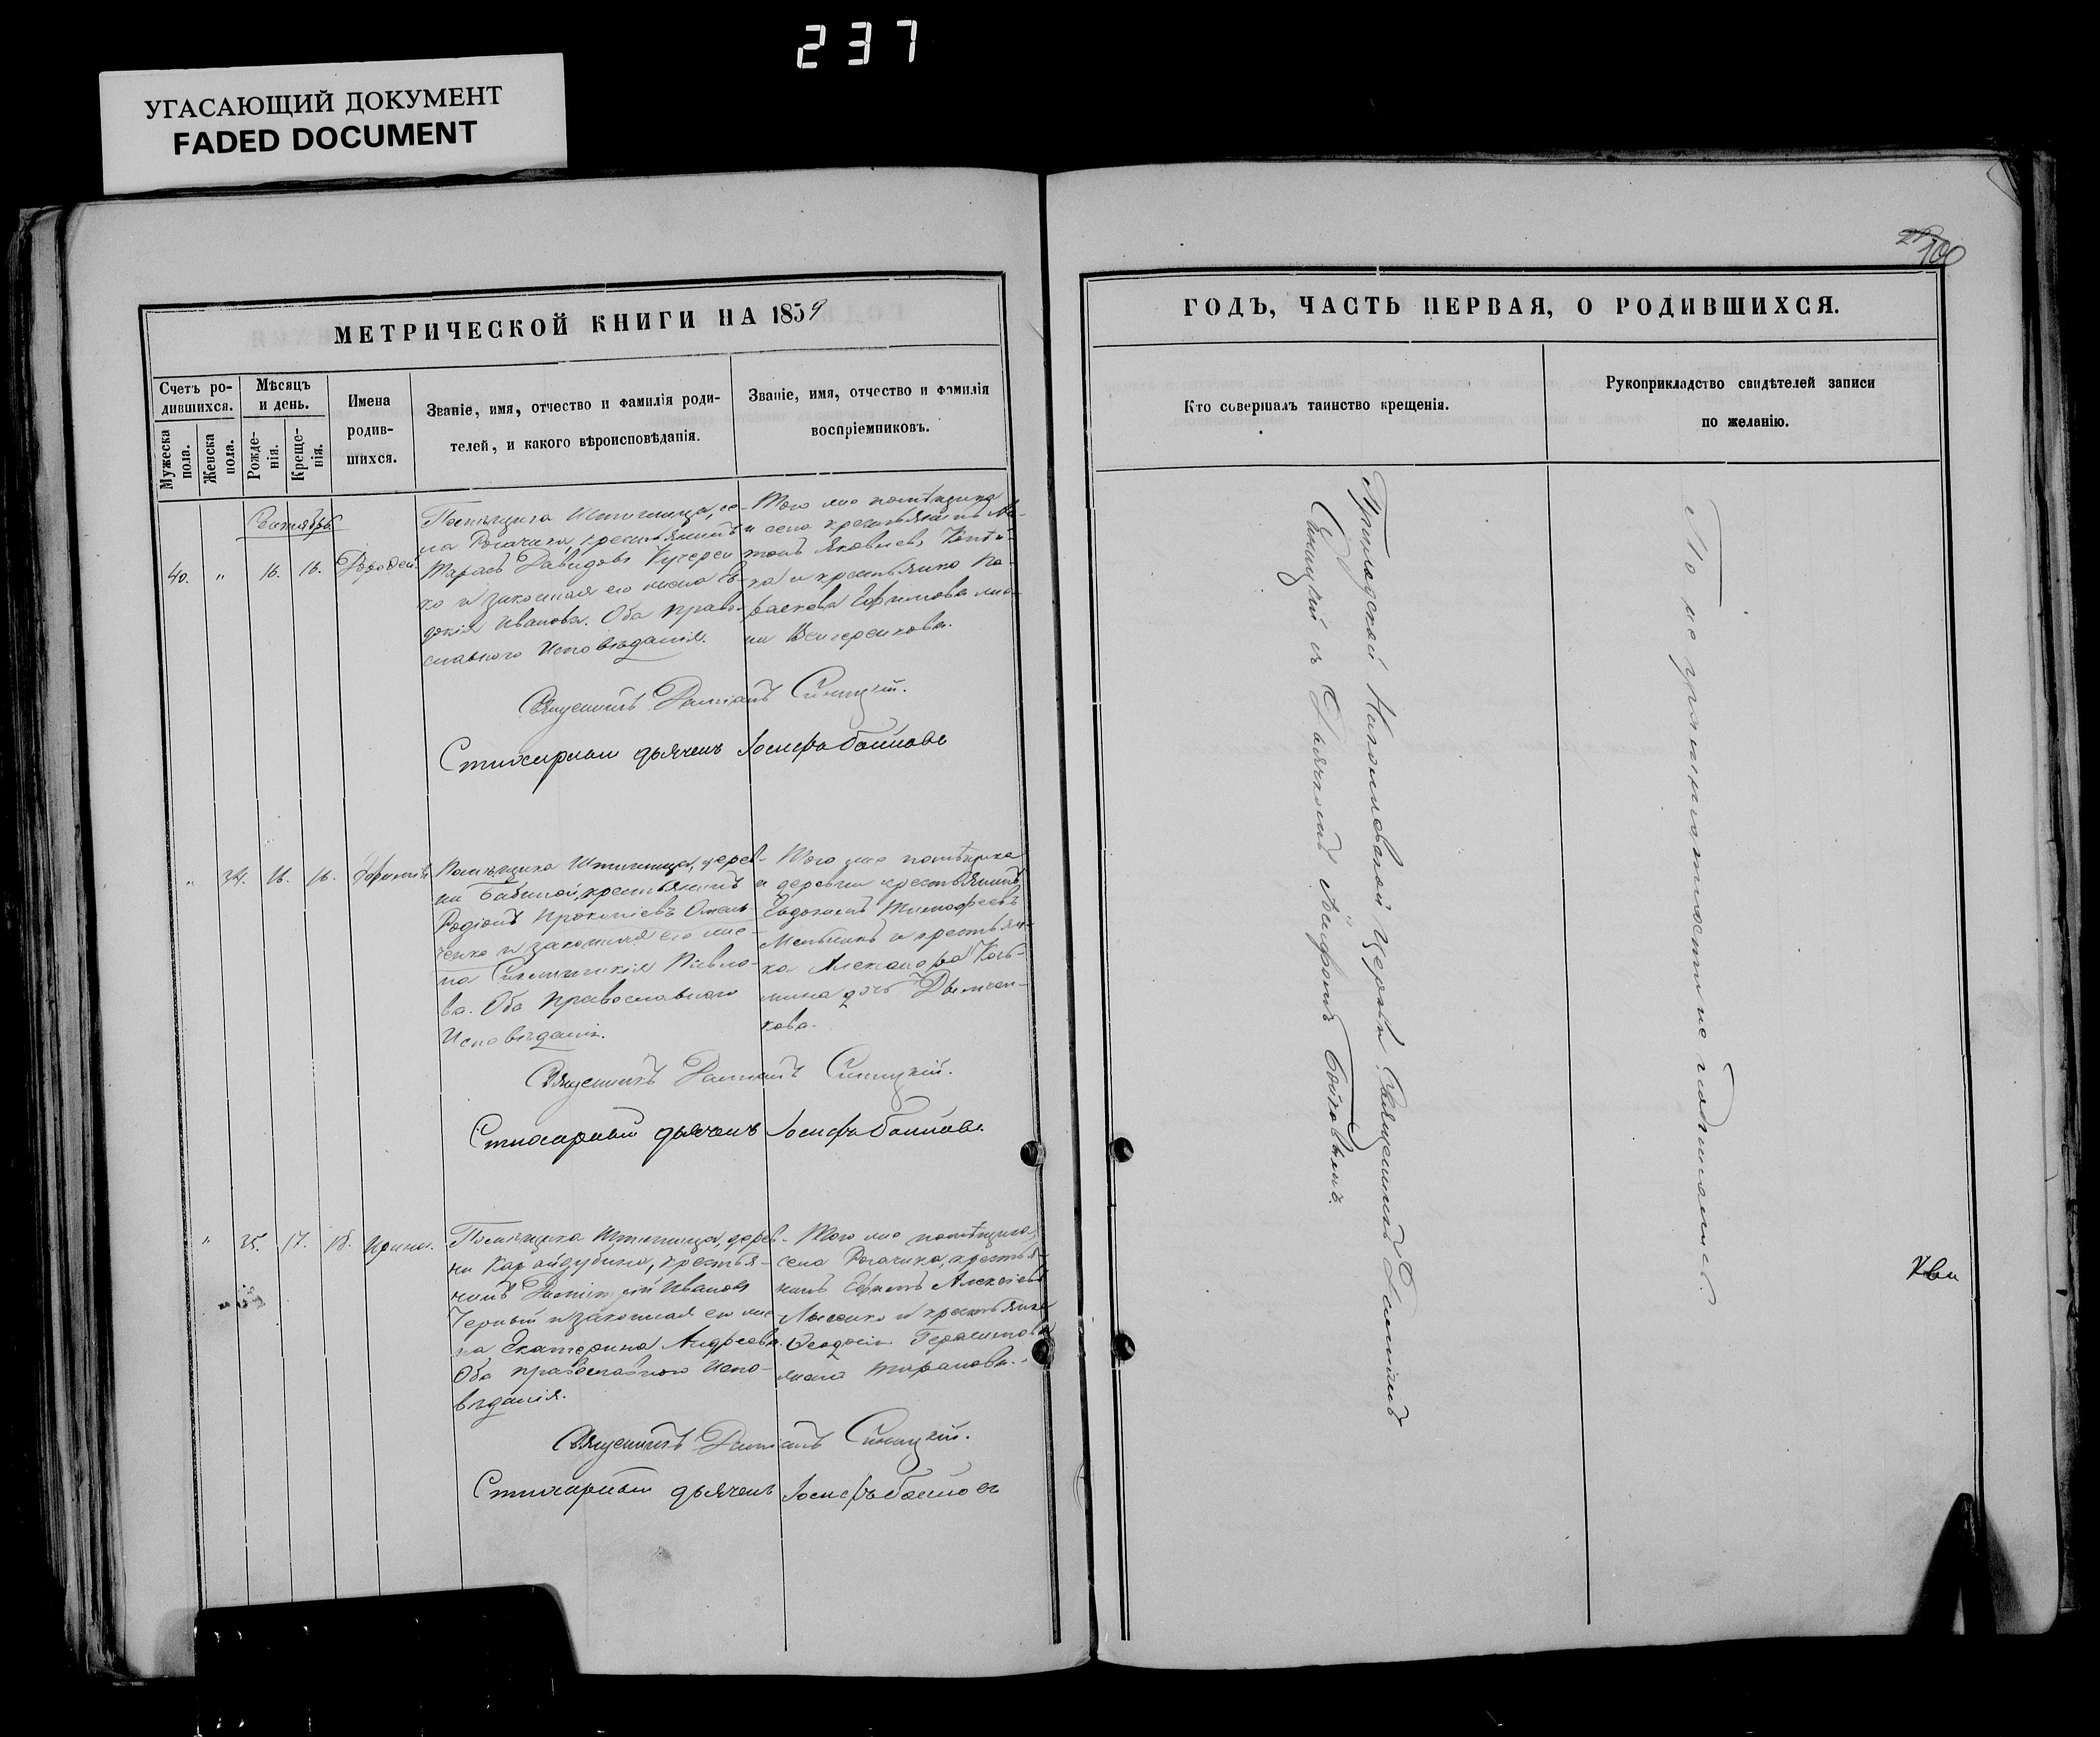 237
УГАСАЮЩИЙ ДОКУМЕНТ
FADED DOCUMENT
100
МЕТРИЧЕСКОЙ КНИГИ НА 1859
Счетъ ро-
дившихся.
Мужеска
пола.
Женска
пола.
Мѣсяцъ
и день.
Рожде-
нія.
Креще-
нія.
Имена
родив-
шихся.
Званіе, имя, отчество и фамилія роди-
телей, и какого вѣроисповѣданія.
Званіе, имя, отчество и фамилія
воспріемниковъ.
40. " 16. 16.
ла Рогачика, крестьянинъ
Тарасъ Давидовъ Кучерен
ко и законная его жена Ев-
докія Иванова. Оба право-
славнаго Исповѣданія.
Того же помѣщика
и села крестьянинъ
Яковлевъ
ка и крестьянка Па-
раскева Ефимова
Венгеренкова.
Священникъ Даміанъ Синицкій.
Стихарный дьячекъ
" 34. 16. 16.
Помѣщика дерев-
ни Бабиной, крестьянинъ
Родіонъ Прокопіевъ Омель-
ченко и законная его же-
на Синклитикія Павло-
ва. Оба Православнаго
Исповѣданія.
Того же помѣщика
и деревни крестьянинъ
Евдокимъ Тимофеевъ
Мельникъ и крестьян-
ка Александра Козь-
мина дочь
кова.
Священникъ Даміанъ Синицкій.
Стихарный дьячекъ
" 35. 17. 18. Ирина.
Помѣщика дерев-
ни Карайдубина, крестья-
нинъ Димитрій Ивановъ
Черный и законная его же-
на Екатерина Андреева.
Оба православнаго Испо-
вѣданія.
Того же помѣщика,
села Рогачика, крестья-
нинъ Ефимъ Алексіевъ
Лысенко и крестьянка
Феодосія Герасимова
Таранова.
Священникъ Даміанъ Синицкій.
Стихарный дьячекъ
ГОДЪ, ЧАСТЬ ПЕРВАЯ, О РОДИВШИХСЯ.
Кто совершалъ таинство крещенія.
Рукоприкладство свидѣтелей записи
по желанію.
Приходской Николаевской церкви Священникъ Даміанъ
Синицкій съ Дьячкомъ Бойковымъ.
По не грамотности не подписались.